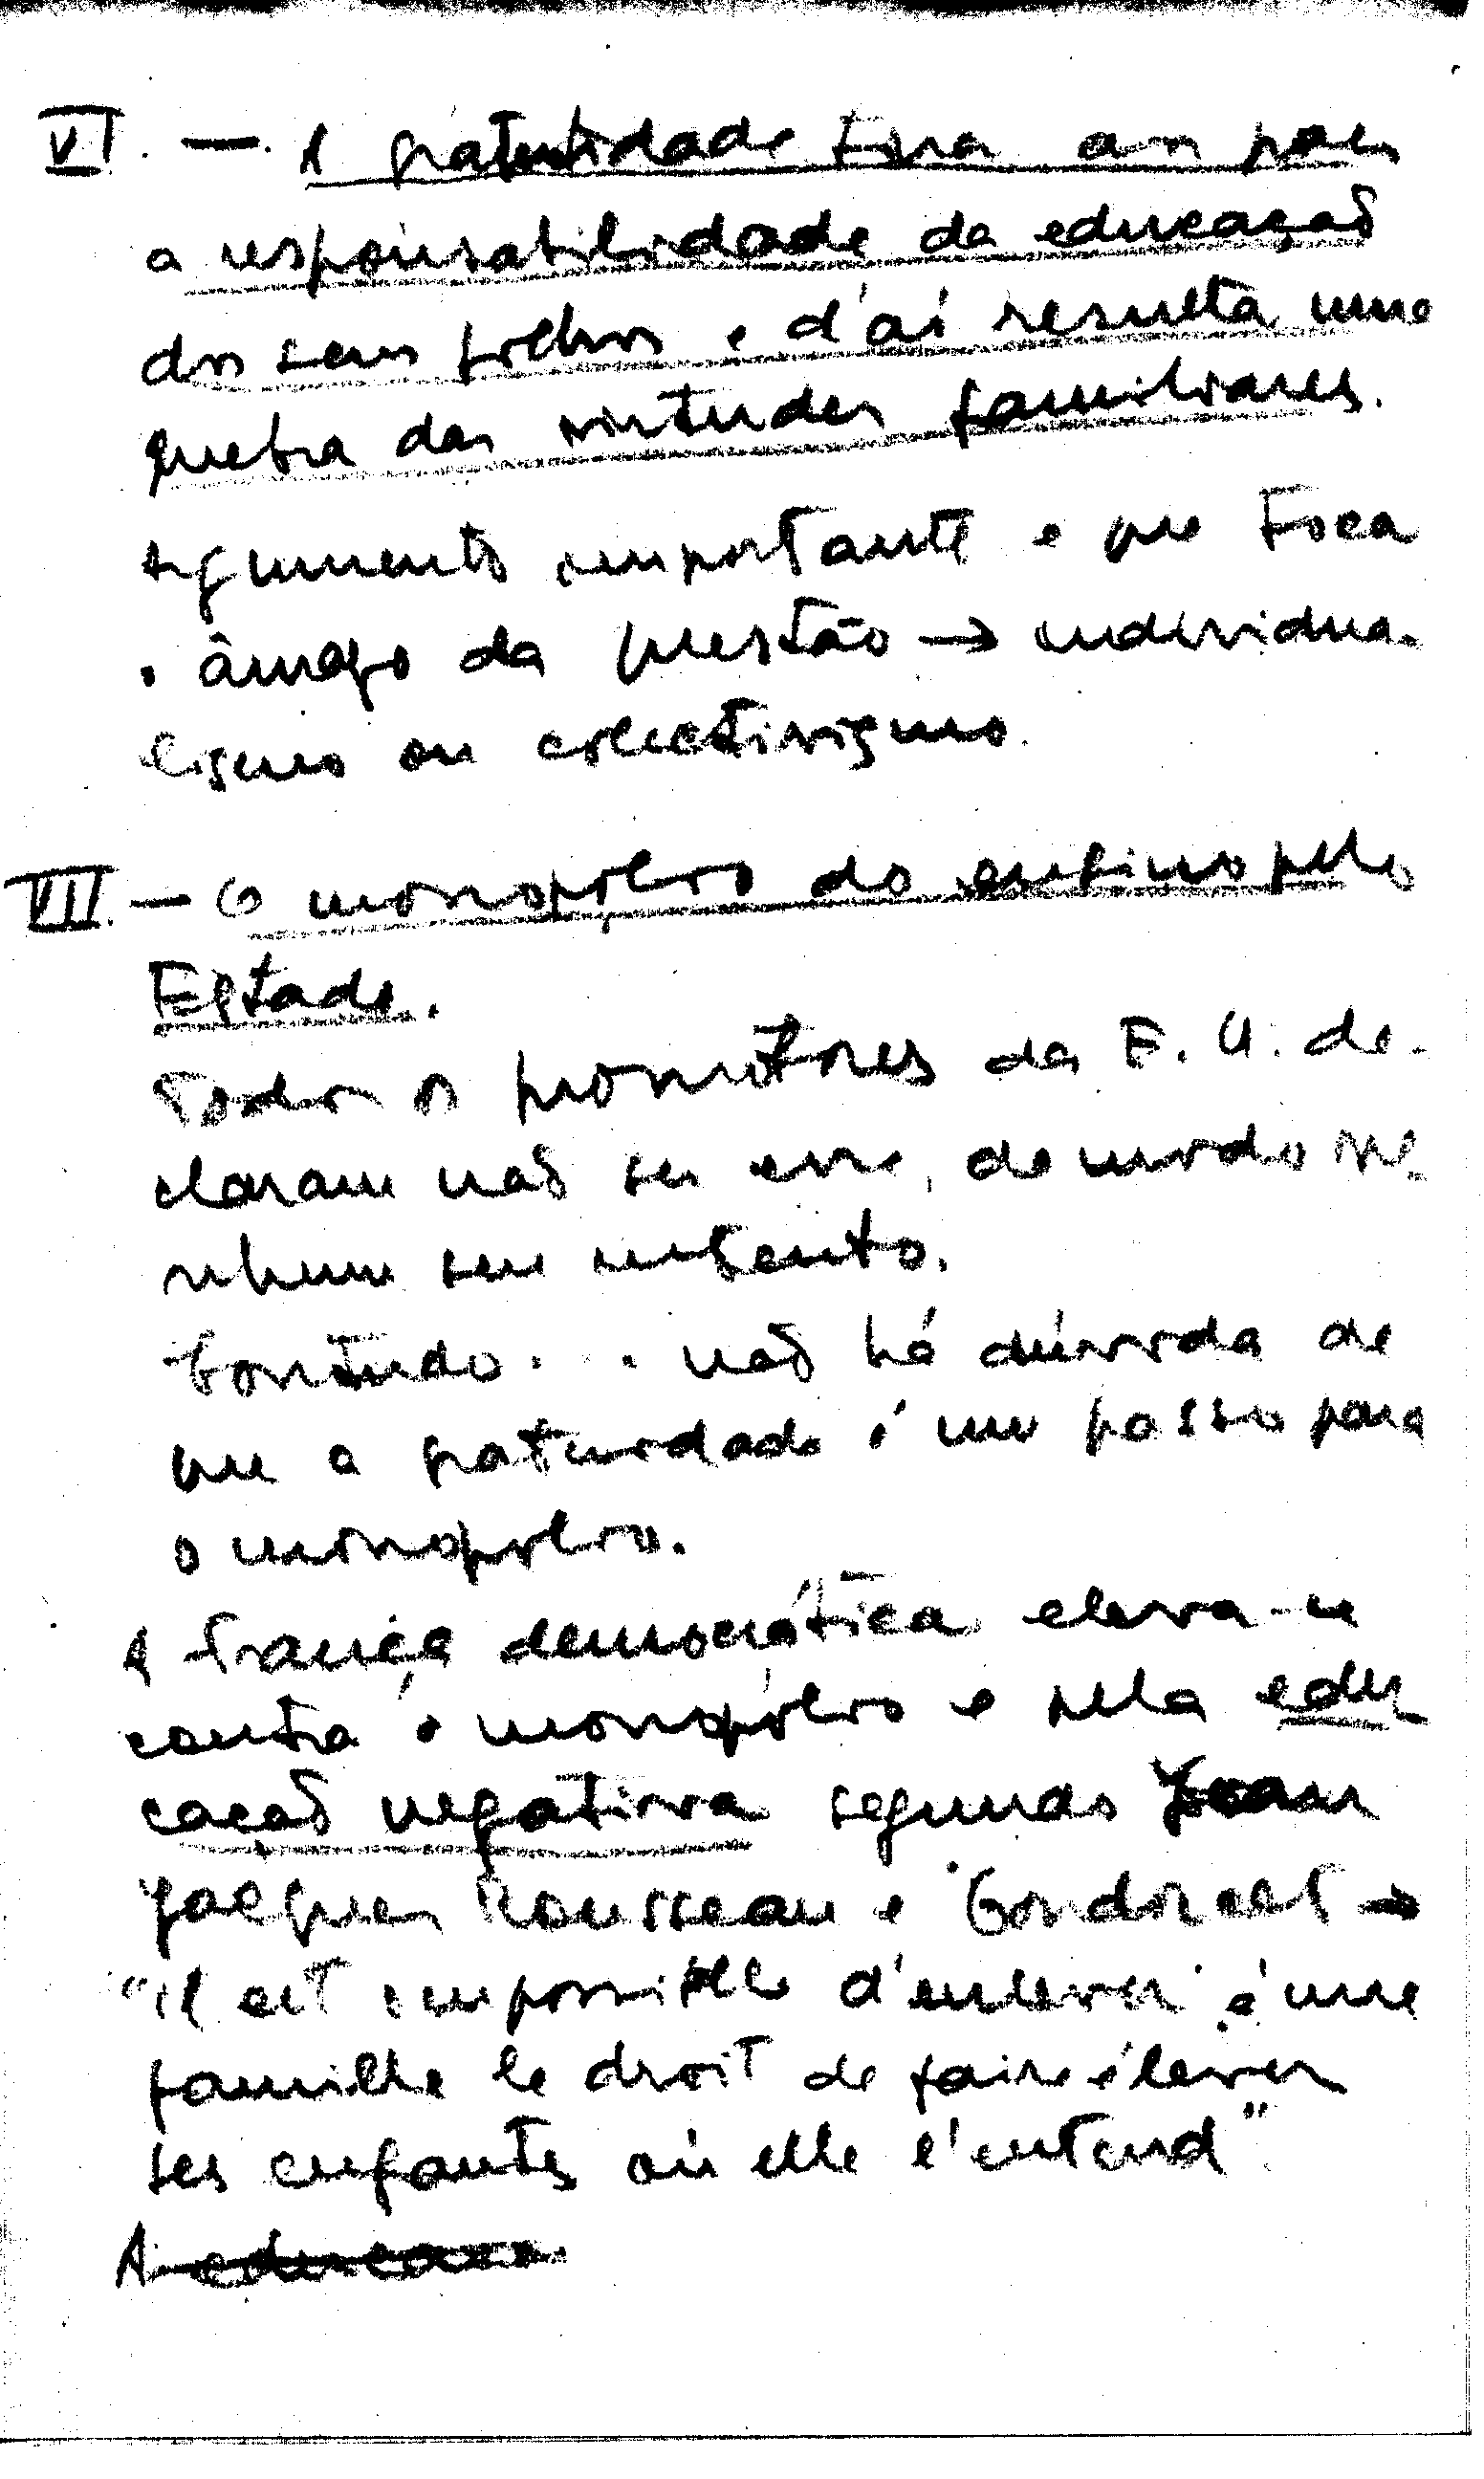 VI. — A gratuidade tira aos pais
a responsabilidade da educação
dos seus filhos e d'aí resulta uma
quebra das virtudes familiares.
Argumento importante e que toca
o âmago da questão → individua-
lismo ou colectivismo.
VII. — O monopólio do ensino pelo
Estado.
Todos os promotores da E. U. de-
claram não ser esse, de modo ne-
nhum seu intento.
Contudo... não há dúvida de
que a gratuidade é um passo para
o monopólio.
A França democrática eleva-se
contra o monopólio e pela edu-
cação negativa segundo Jean
Jacques Rousseau e Condorcet →
"il est impossible d'enlever à une
famille le droit de faire élever
ses enfants où elle l'entend".
A educação